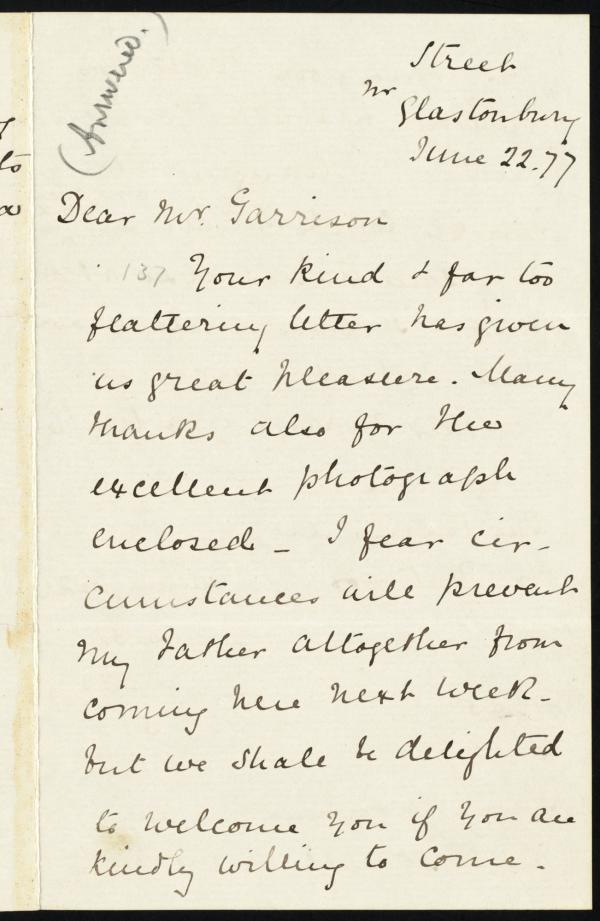 (Answered.)
Street
nr Glastonbury
June 22. 77
Dear Mr. Garrison
137 Your kind & far too
flattering letter has given
us great pleasure. Many
thanks also for the
excellent photograph
enclosed - I fear cir-
cumstances will prevent
my Father altogether from
coming here next week -
but we shall be delighted
to welcome you if you are
kindly willing to come -
to